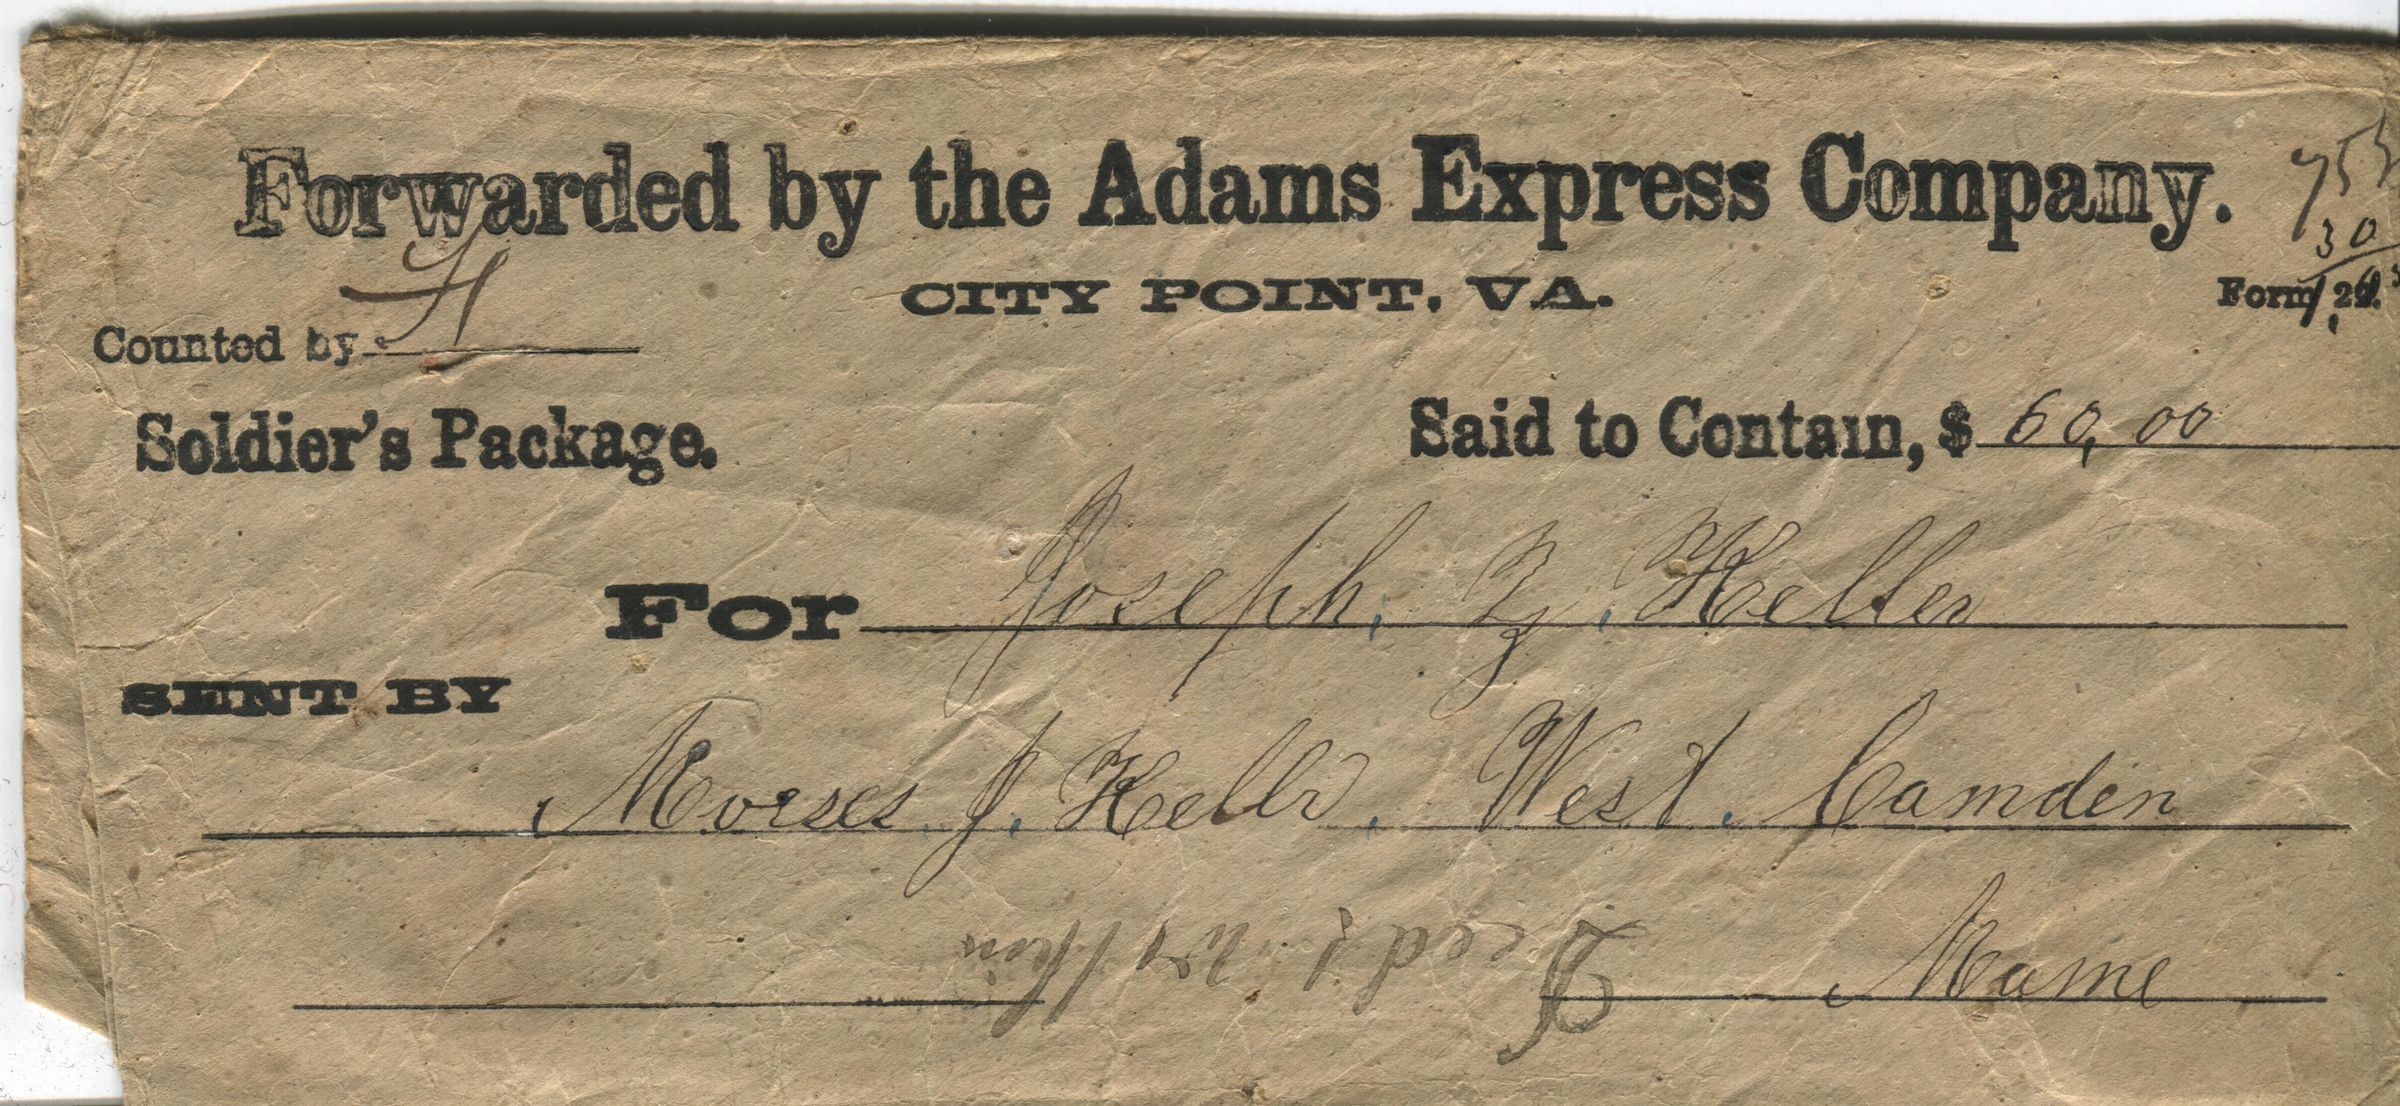 Forwarded by the Adams Express Company.
CITY POINT, VA.
30
Form
Counted by H
Soldier's Package.
Said to Contain, $ 60,00
For Joseph. Z. Keller
SENT BY
Morses. J. Kellr, West. Camden
Maine
Deeds within